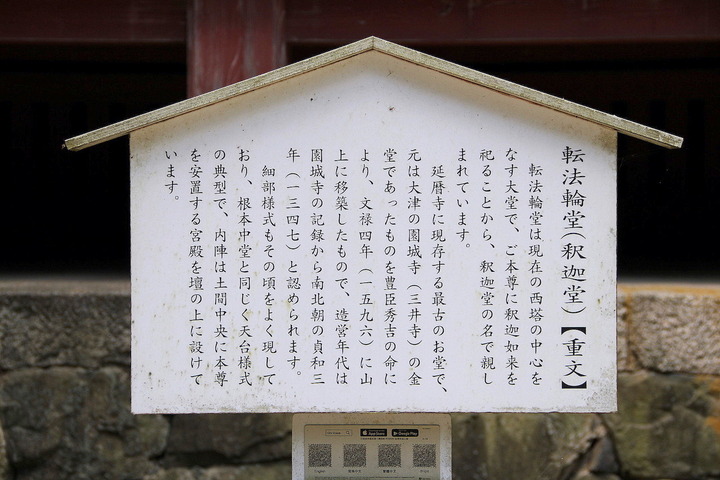 転法輪堂（釈迦堂）【重文】
転法輪堂は現在の西塔の中心を
なす大堂で、ご本尊に釈迦如来を
祀ることから、釈迦堂の名で親し
まれています。
延暦寺に現存する最古のお堂で、
元は大津の園城寺（三井寺）の金
堂であったものを豊臣秀吉の命に
より、文禄四年（一五九六）に山
上に移築したもので、造営年代は
園城寺の記録から南北朝の貞和三
年（一三四七）と認められます。
細部様式もその頃をよく現して
おり、根本中堂と同じく天台様式
の典型で、内陣は土間中央に本尊
を安置する宮殿を壇の上に設けて
います。
App Store
Google Play